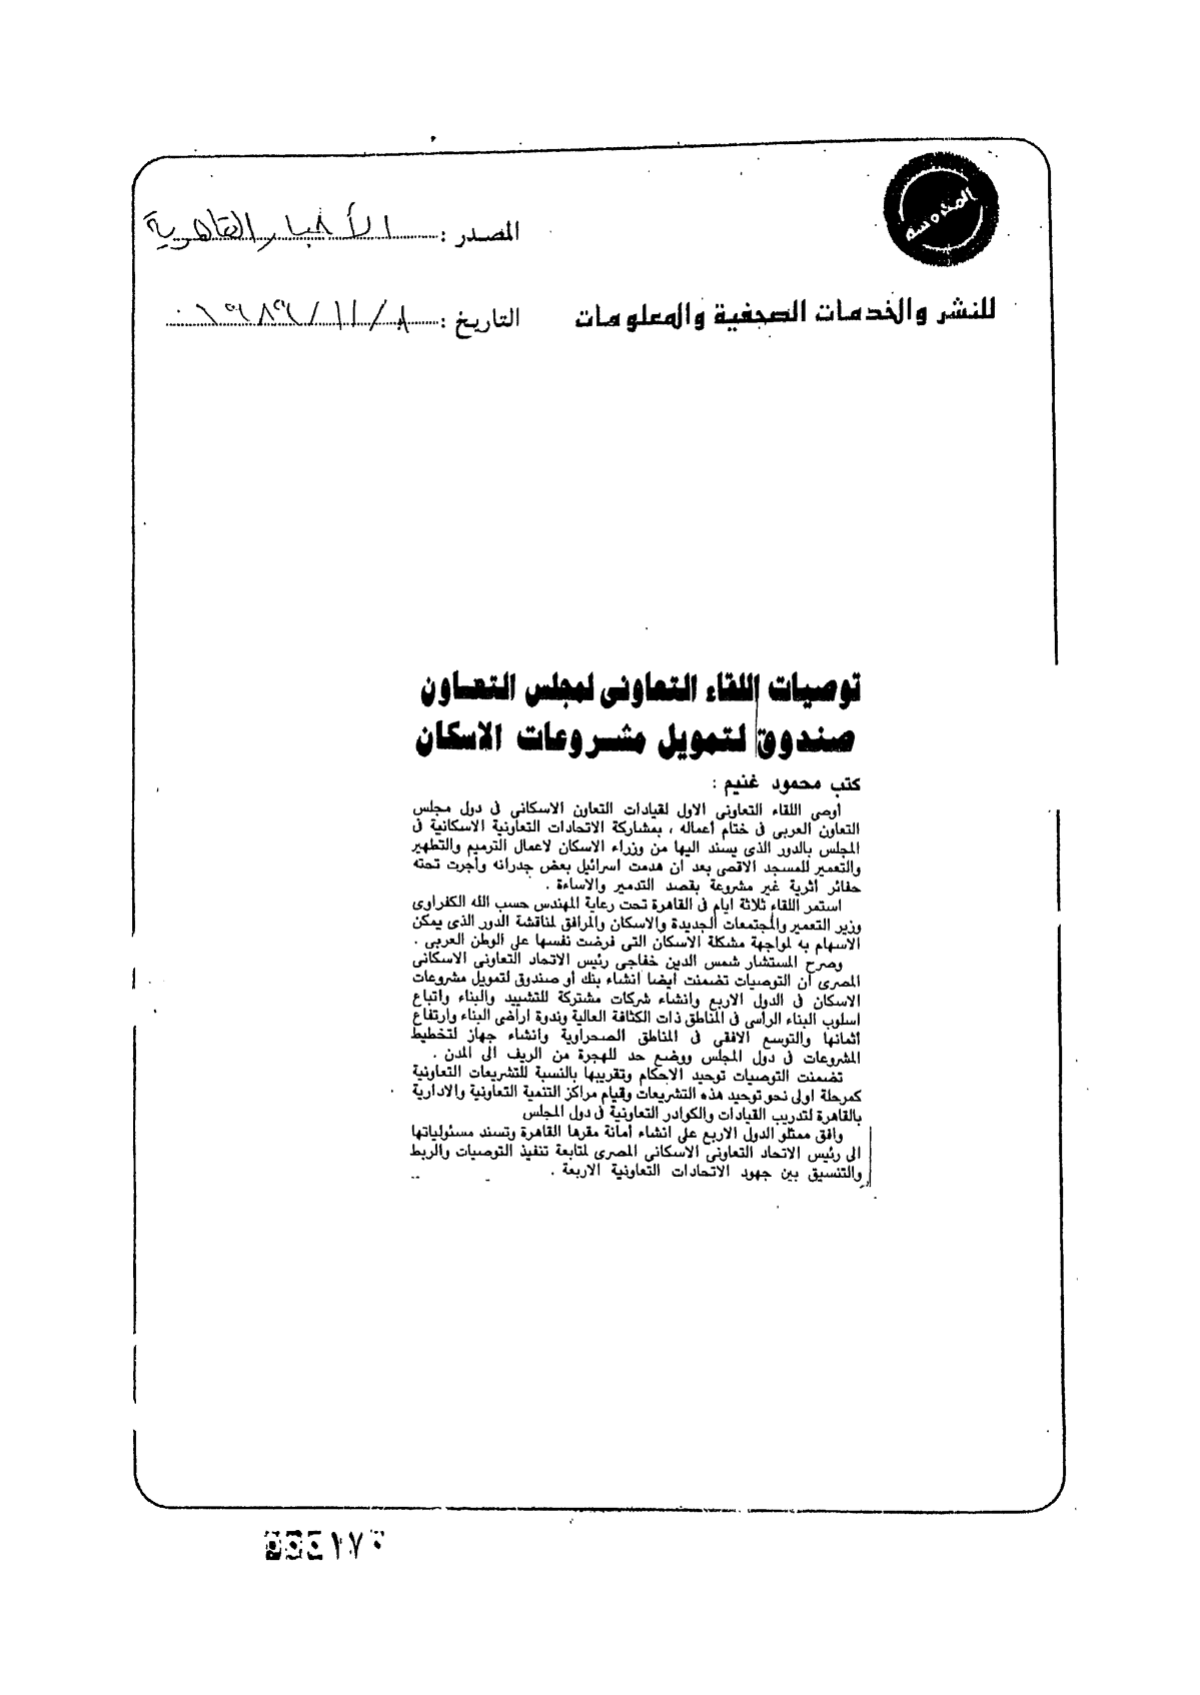 المحروسة
المصدر : الأخبار القاهرية
للنشر والخدمات الصحفية والمعلومات
التاريخ : ٨ / ١١ / ١٩٨٩
توصيات اللقاء التعاونى لمجلس التعاون
صندوق لتمويل مشروعات الاسكان
كتب محمود غنيم :
أوصى اللقاء التعاونى الاول لقيادات التعاون الاسكانى فى دول مجلس
التعاون العربى فى ختام أعماله ، بمشاركة الاتحادات التعاونية الاسكانية فى
المجلس بالدور الذى يسند اليها من وزراء الاسكان لاعمال الترميم والتطهير
والتعمير للمسجد الاقصى بعد ان هدمت اسرائيل بعض جدرانه وأجرت تحته
حفائر أثرية غير مشروعة بقصد التدمير والاساءة .
استمر اللقاء ثلاثة ايام فى القاهرة تحت رعاية المهندس حسب الله الكفراوى
وزير التعمير والمجتمعات الجديدة والاسكان والمرافق لمناقشة الدور الذى يمكن
الاسهام به لمواجهة مشكلة الاسكان التى فرضت نفسها على الوطن العربى .
وصرح المستشار شمس الدين خفاجى رئيس الاتحاد التعاونى الاسكانى
المصرى ان التوصيات تضمنت أيضا انشاء بنك أو صندوق لتمويل مشروعات
الاسكان فى الدول الاربع وانشاء شركات مشتركة للتشييد والبناء واتباع
اسلوب البناء الرأسى فى المناطق ذات الكثافة العالية وندوة اراضى البناء وارتفاع
اثمانها والتوسع الافقى فى المناطق الصحراوية وانشاء جهاز لتخطيط
المشروعات فى دول المجلس ووضع حد للهجرة من الريف الى المدن .
تضمنت التوصيات توحيد الاحكام وتقريبها بالنسبة للتشريعات التعاونية
كمرحلة اولى نحو توحيد هذه التشريعات وقيام مراكز التنمية التعاونية والادارية
بالقاهرة لتدريب القيادات والكوادر التعاونية فى دول المجلس
وافق ممثلو الدول الاربع على انشاء أمانة مقرها القاهرة وتسند مسئولياتها
الى رئيس الاتحاد التعاونى الاسكانى المصرى لمتابعة تنفيذ التوصيات والربط
والتنسيق بين جهود الاتحادات التعاونية الاربعة .